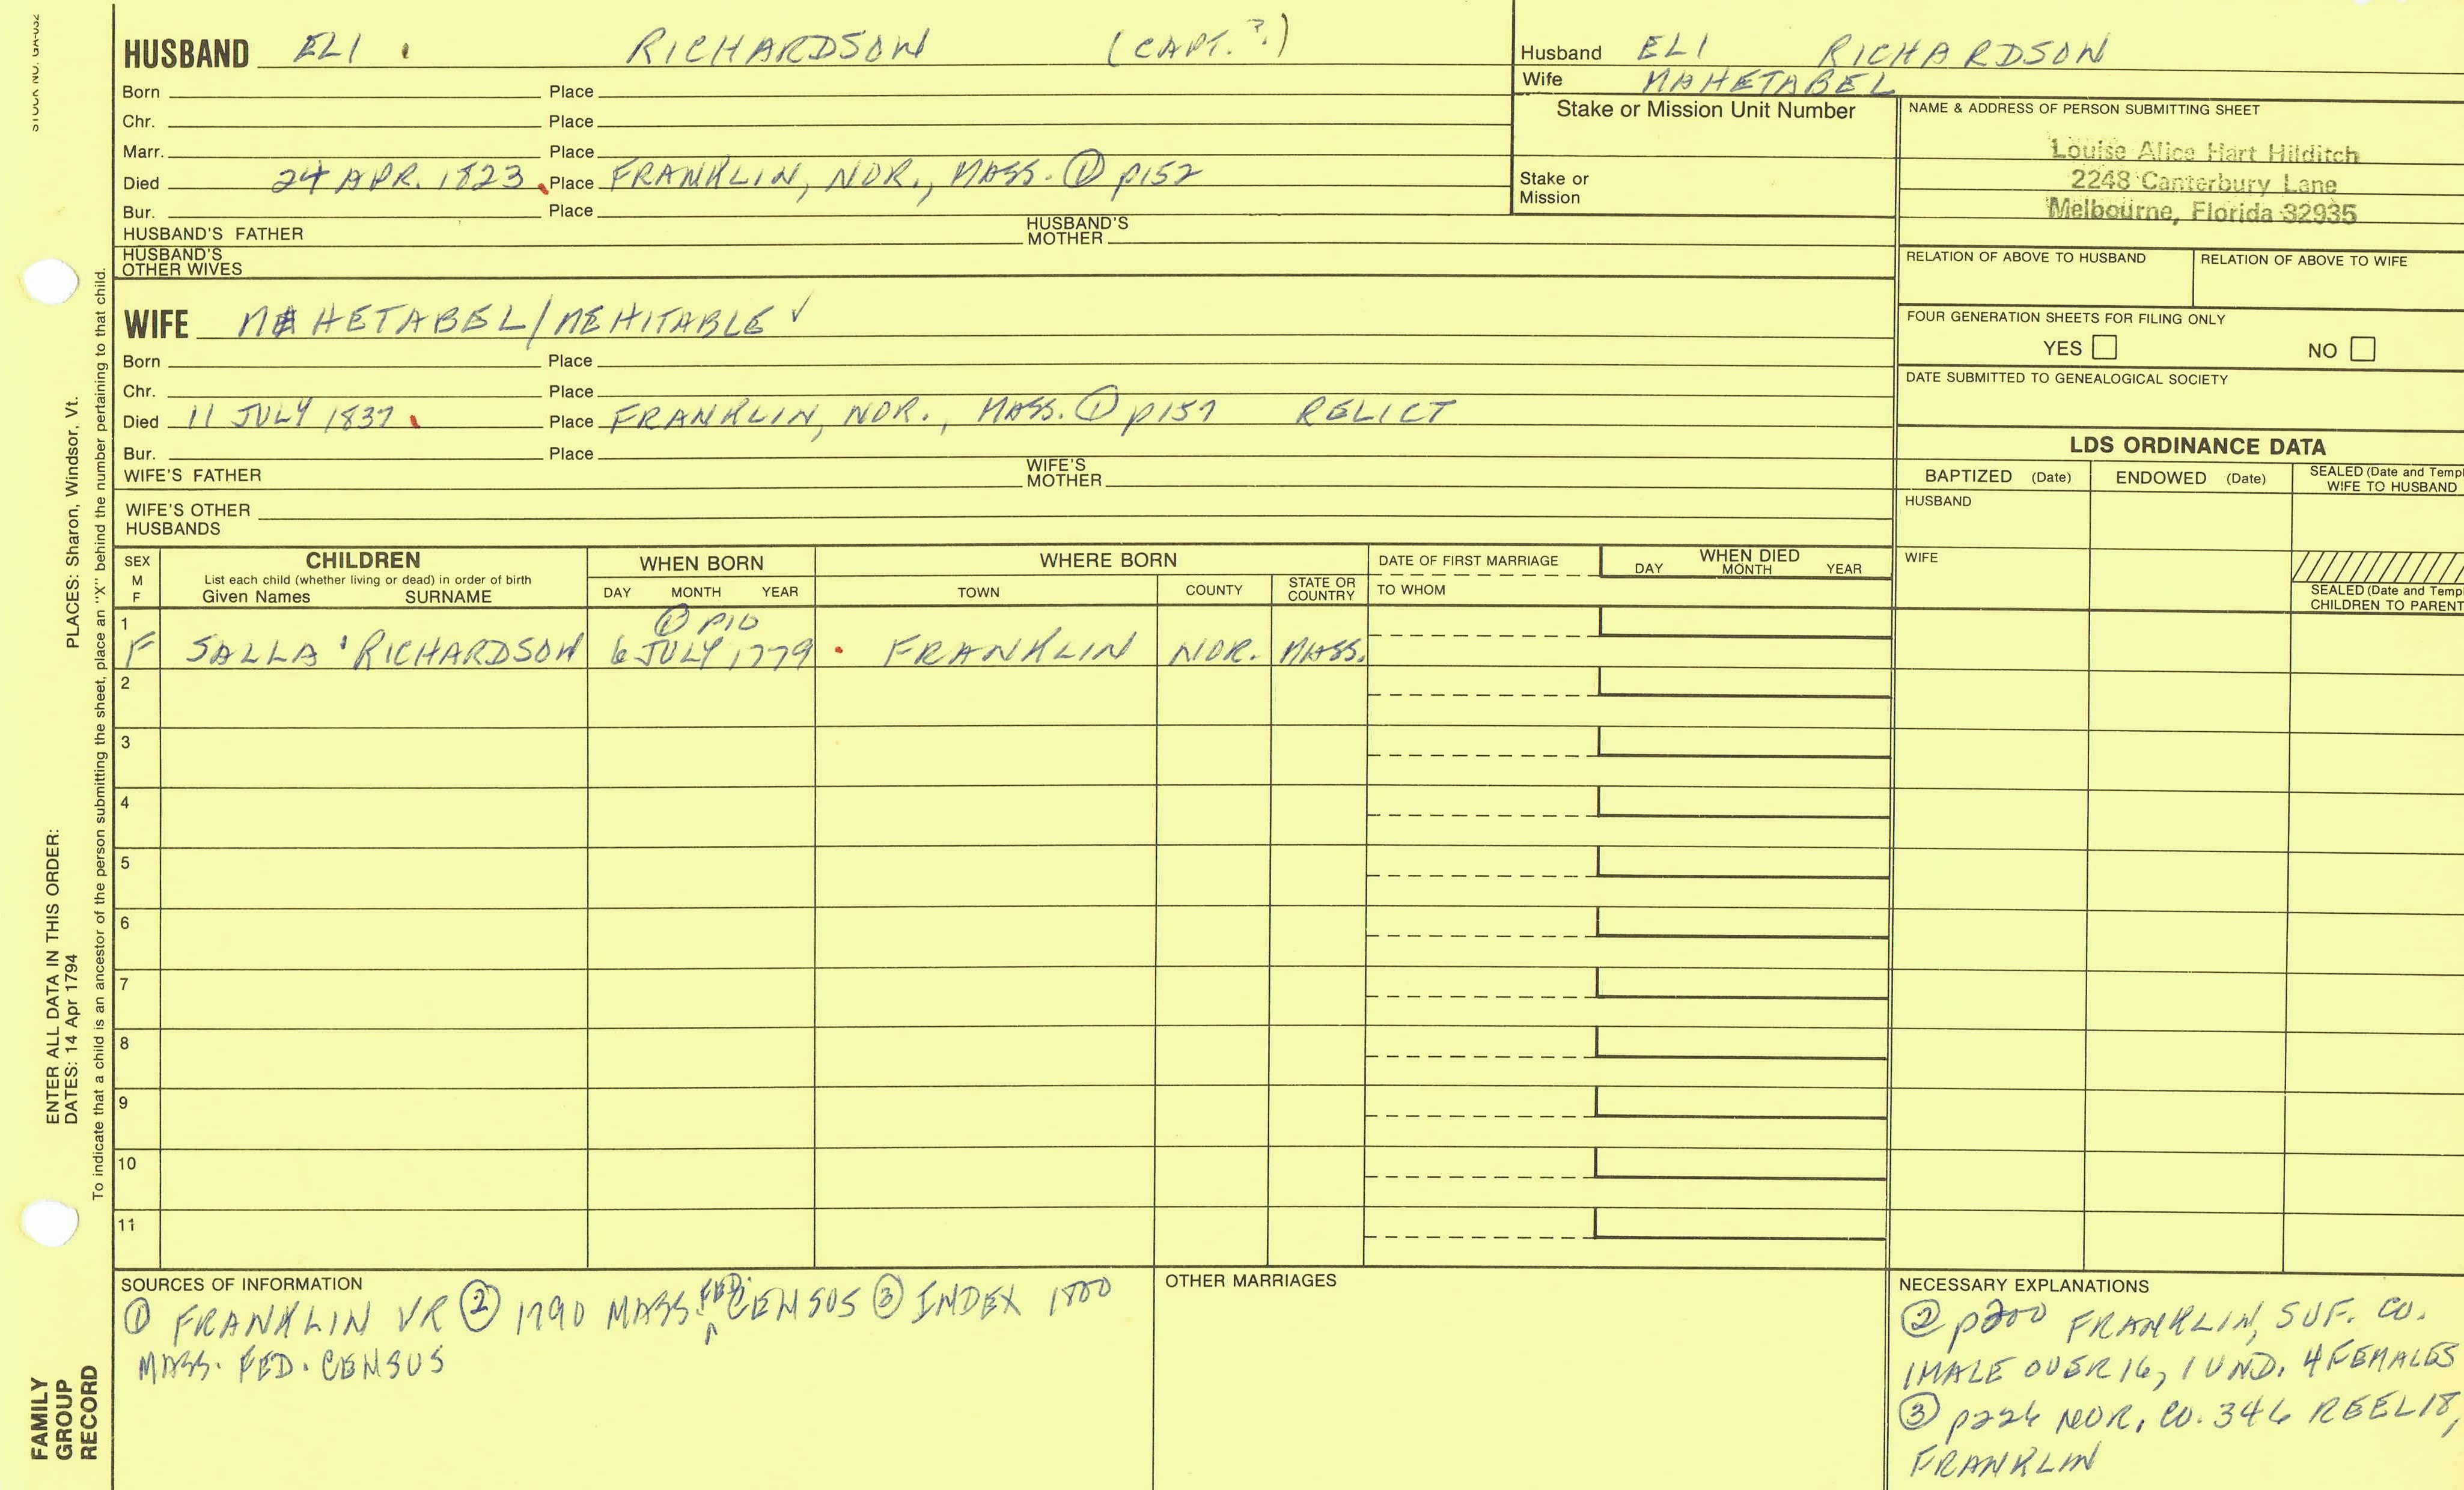 HUSBAND ELI RICHARDSON (CAPT.?)
Born Place
Chr. Place
Marr. Place
Died 24 APR. 1823 Place FRANKLIN, NOR., MASS. ① p152
Bur. Place
HUSBAND'S FATHER HUSBAND'S MOTHER
HUSBAND'S OTHER WIVES
Husband ELI RICHARDSON
Wife MAHETABEL
Stake or Mission Unit Number
Stake or Mission
NAME & ADDRESS OF PERSON SUBMITTING SHEET
Louise Alice Hart Hilditch
2248 Canterbury Lane
Melbourne, Florida 32935
RELATION OF ABOVE TO HUSBAND RELATION OF ABOVE TO WIFE
FOUR GENERATION SHEETS FOR FILING ONLY
YES NO
DATE SUBMITTED TO GENEALOGICAL SOCIETY
WIFE MAHETABEL/MEHITABLE ✓
Born Place
Chr. Place
Died 11 JULY 1837 Place FRANKLIN, NOR., MASS. ① p157 RELICT
Bur. Place
WIFE'S FATHER WIFE'S MOTHER
WIFE'S OTHER HUSBANDS
LDS ORDINANCE DATA
BAPTIZED (Date) ENDOWED (Date) SEALED (Date and Templ
WIFE TO HUSBAND
HUSBAND
WIFE
SEALED (Date and Templ
CHILDREN TO PARENT
SEX M F
CHILDREN
List each child (whether living or dead) in order of birth
Given Names SURNAME
WHEN BORN
DAY MONTH YEAR
WHERE BORN
TOWN COUNTY STATE OR COUNTRY
DATE OF FIRST MARRIAGE
TO WHOM
WHEN DIED
DAY MONTH YEAR
1 ① p10
F SALLA RICHARDSON 6 JULY 1779 FRANKLIN NOR. MASS.
2
3
4
5
6
7
8
9
10
11
SOURCES OF INFORMATION
① FRANKLIN VR ② 1790 MASS. FED. CENSUS ③ INDEX 1800
MASS. FED. CENSUS
OTHER MARRIAGES
NECESSARY EXPLANATIONS
② p200 FRANKLIN, SUF. CO.
1 MALE OVER 16, 1 UND. 4 FEMALES
③ p226 NOR. CO. 346 REEL 18,
FRANKLIN
STOCK NO. GA-032
PLACES: Sharon, Windsor, Vt.
ENTER ALL DATA IN THIS ORDER:
DATES: 14 Apr 1794
To indicate that a child is an ancestor of the person submitting the sheet, place an "X" behind the number pertaining to that child.
FAMILY
GROUP
RECORD